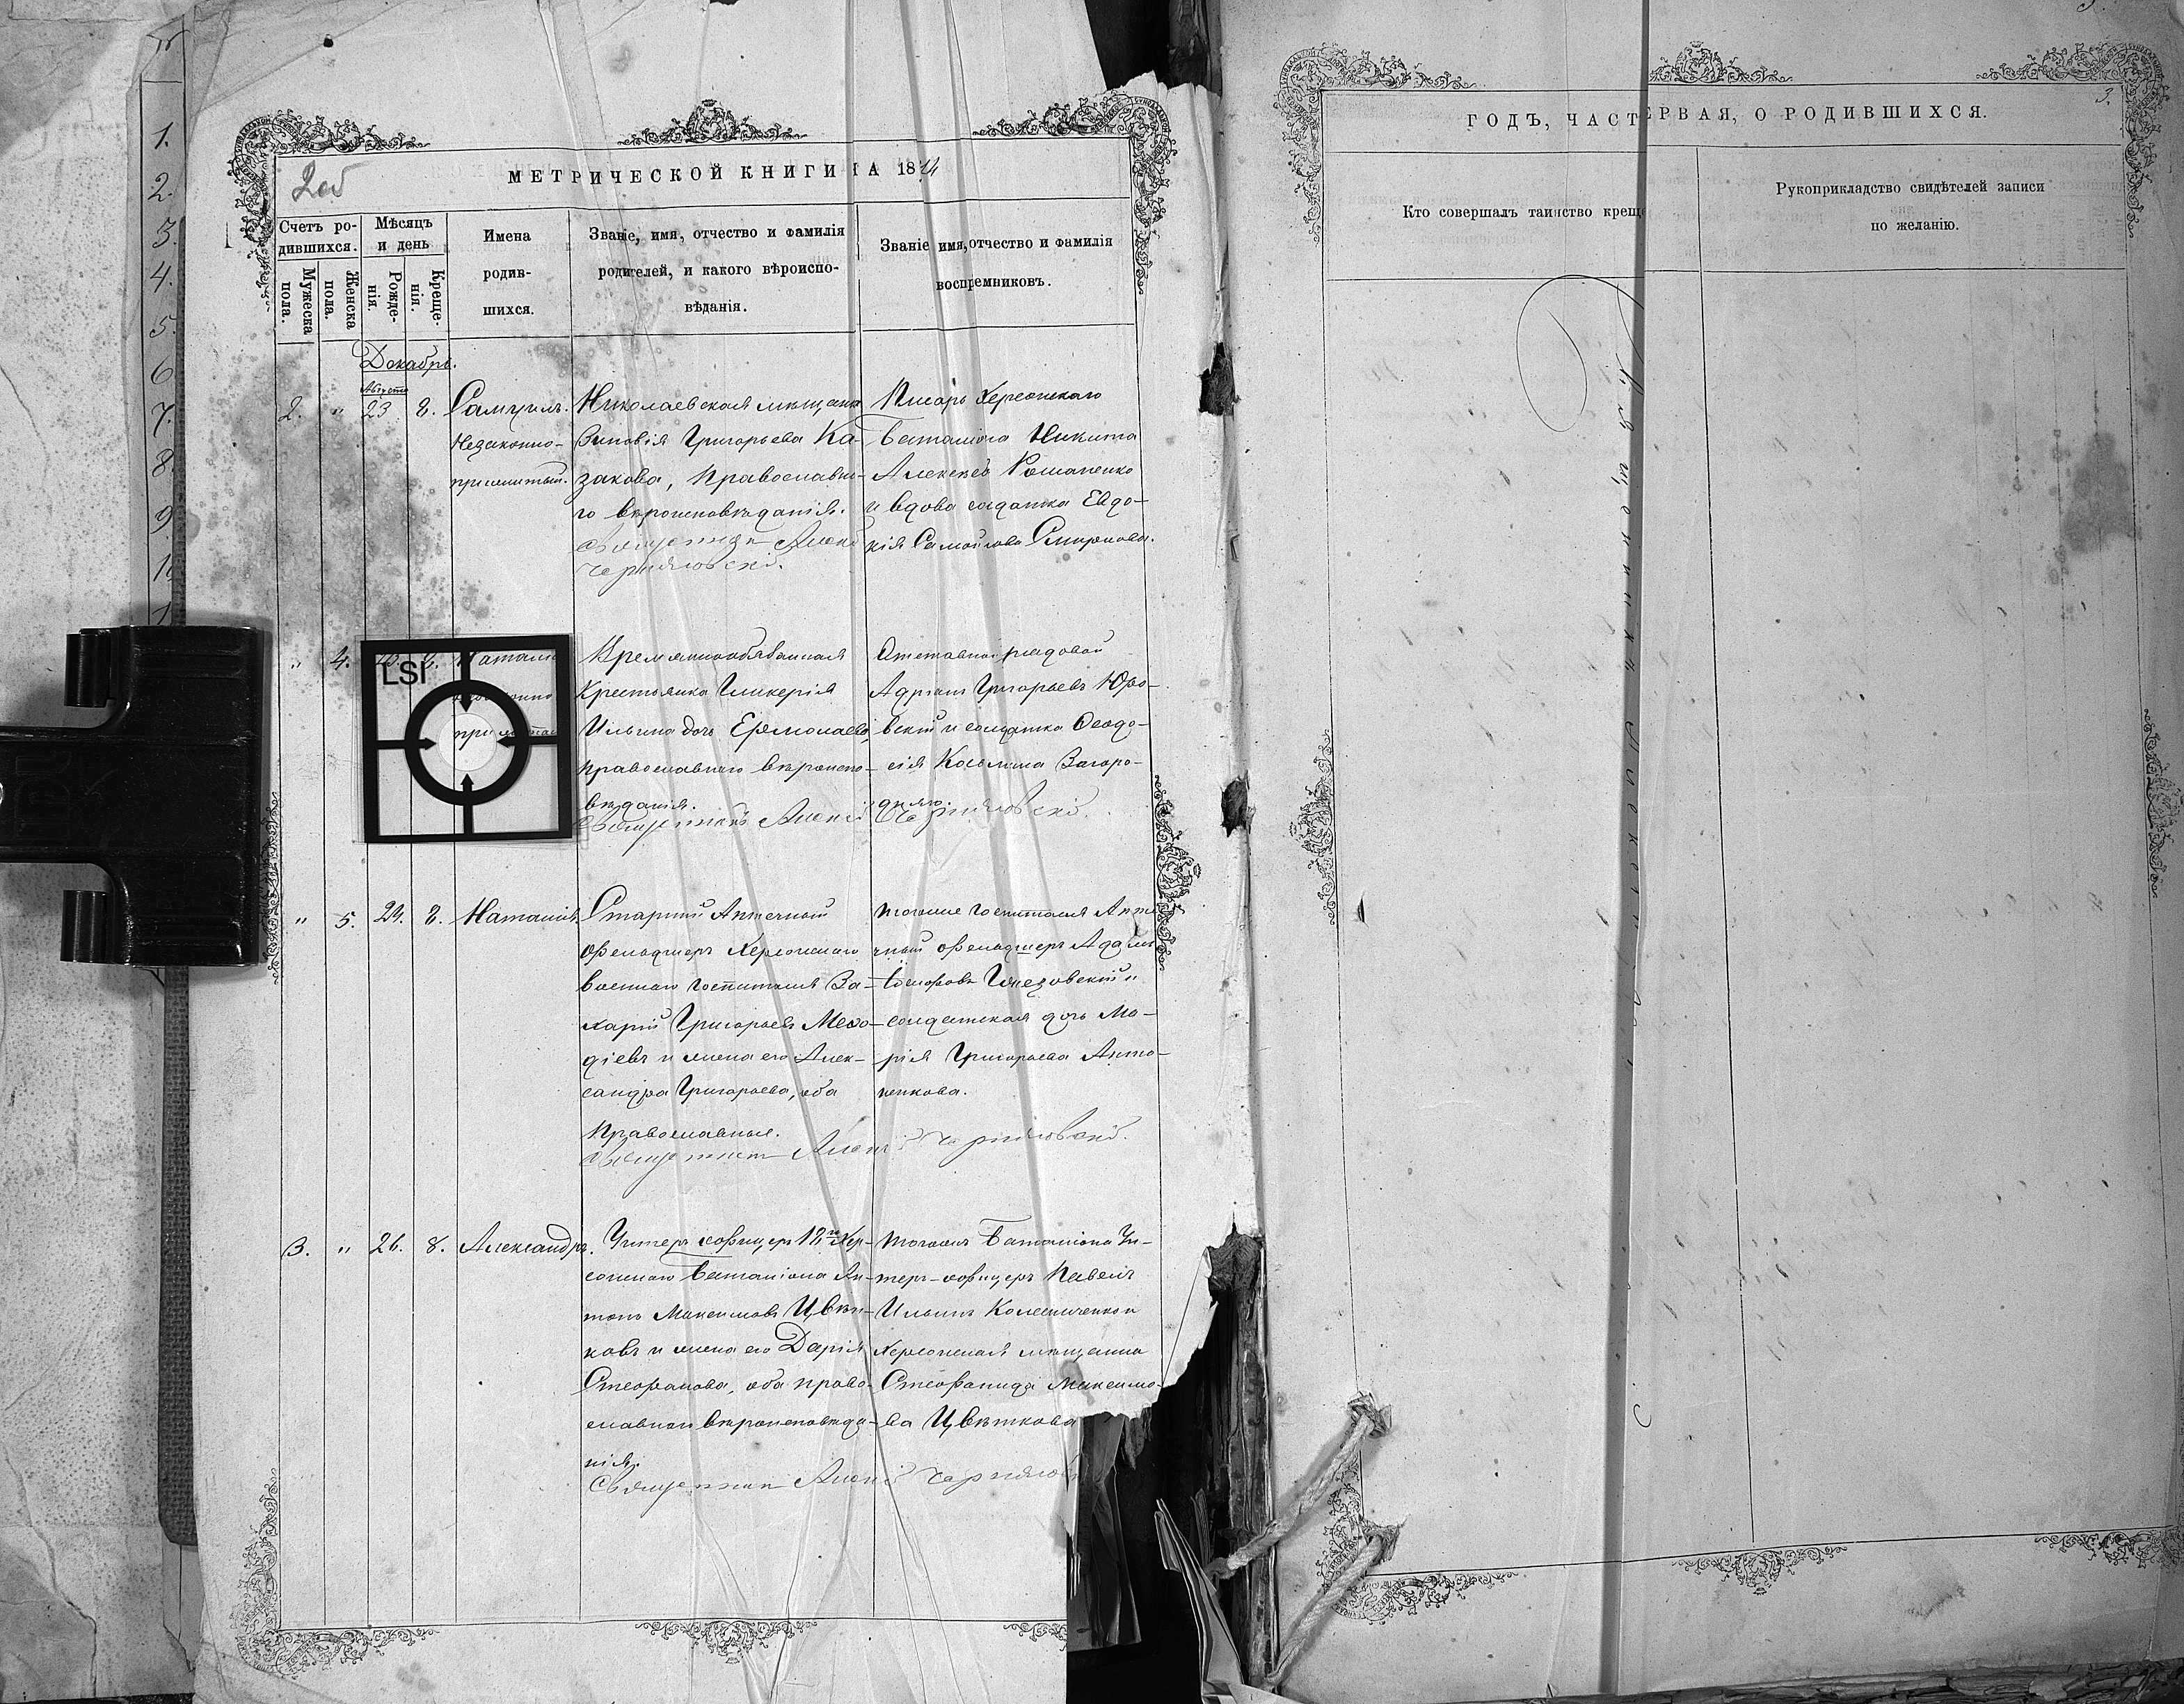 1.
2.
3.
4.
5.
6
7.
8.
9.
10
2об
МЕТРИЧЕСКОЙ КНИГИ НА 18
Счетъ ро-
дившихся.
Мужеска
пола.
Женска
пола.
Мѣсяцъ
и день
Рожде-
нія.
Креще-
нія.
Имена
родив-
шихся.
Званіе, имя, отчество и фамилія
родителей, и какого вѣроиспо-
вѣданія.
Званіе имя, отчество и фамилія
воспріемниковъ.
Декабрь.
Августа
2. " 23 8. Самуилъ.
Незаконно-
прижитый.
Николаевская мѣщанка
Зиновія Григорьева Ка-
закова, Православна-
го вѣроисповѣданія.
Священникъ Алексій
Черняховскій.
Писарь Херсонскаго
баталіона Никита
Алексѣевъ Романенко
и вдова солдатка Евдо-
кія Самойлова Смирнова.
" 4. Наталія
LSI
Временнообязанная
Крестьянка Гликерія
Ильина дочь Ермолаева,
православнаго вѣроиспо-
вѣданія.
Отставной рядовой
Адріанъ Григорьевъ Юро-
вскій и солдатка Ѳеодо-
сія Косьмина Загоро-
дняго.
Священникъ Алексій Черняховскій.
" 5. 24. 8. Наталія.
Старшій Аптечный
фельдшеръ Херсонскаго
военнаго госпиталя За-
харій Григорьевъ Меѳо-
діевъ и жена его Алек-
сандра Григорьева, оба
Православные.
тогоже госпиталя Апте
чный фельдшеръ Адамъ
солдатская дочь Ма-
рія Григорьева Анто-
ненкова.
Священникъ Алексій Черняховскій.
3. " 26. 8. Александръ.
Унтеръ офицеръ 12го Хер-
сонскаго баталіона Ан-
тонъ Максимовъ Цвѣт-
ковъ и жена его Дарія
Стефанова, оба право-
славнаго вѣроисповѣда-
нія.
тогоже баталіона Ун-
теръ-офицеръ Павелъ
Ильинъ Колесниченко и
Херсонская мѣщанка
Стефанида Максимо-
ва Цвѣткова
Священникъ Алексій Черняхов
3.
ГОДЪ, ЧАСТ ЕРВАЯ, О РОДИВШИХСЯ.
Кто совершалъ таинство креще
Рукоприкладство свидѣтелей записи
по желанію.